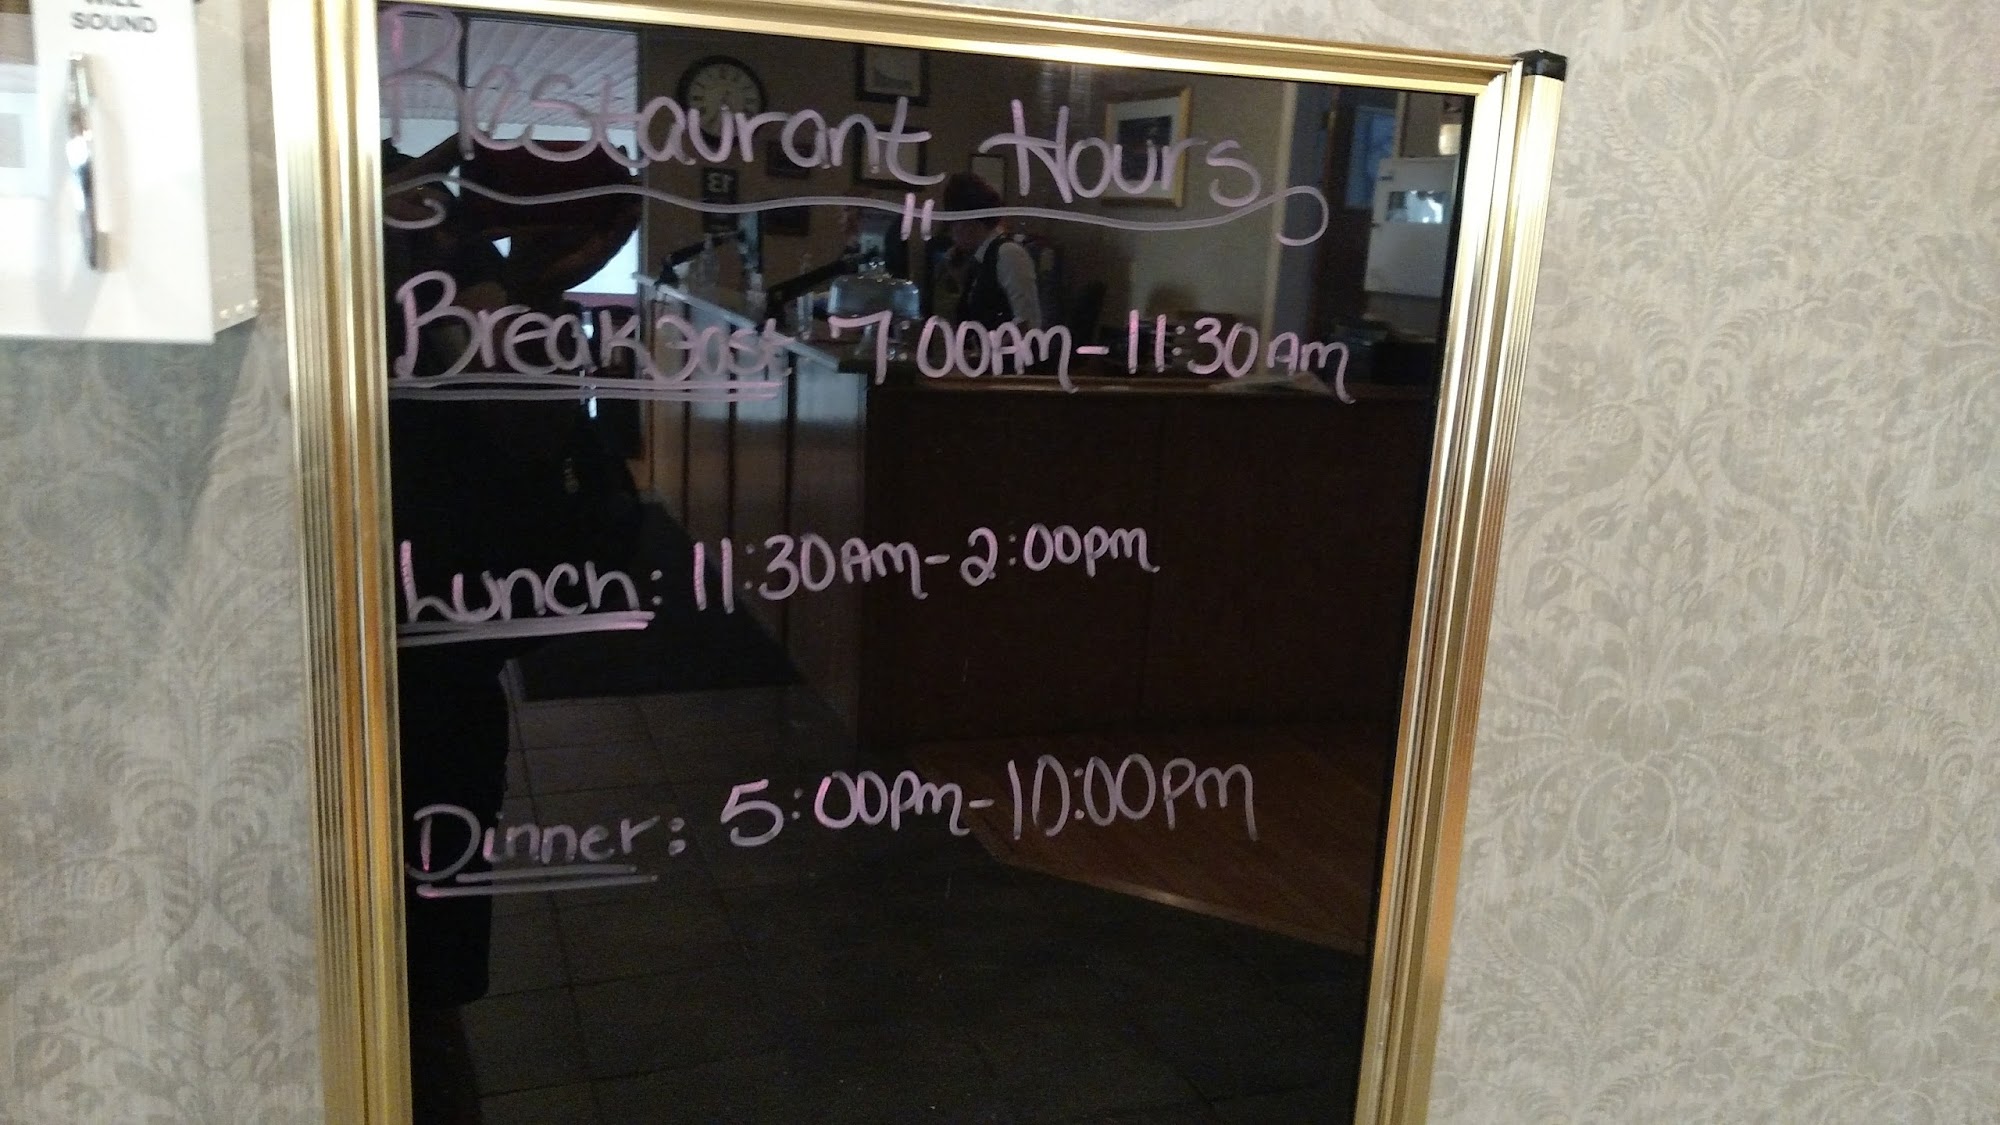 WILL
SOUND
Restaurant Hours
"
Breakfast 7 00AM-11:30AM
Lunch: 11:30AM-2:00pm
Dinner: 5:00pm-10:00pm